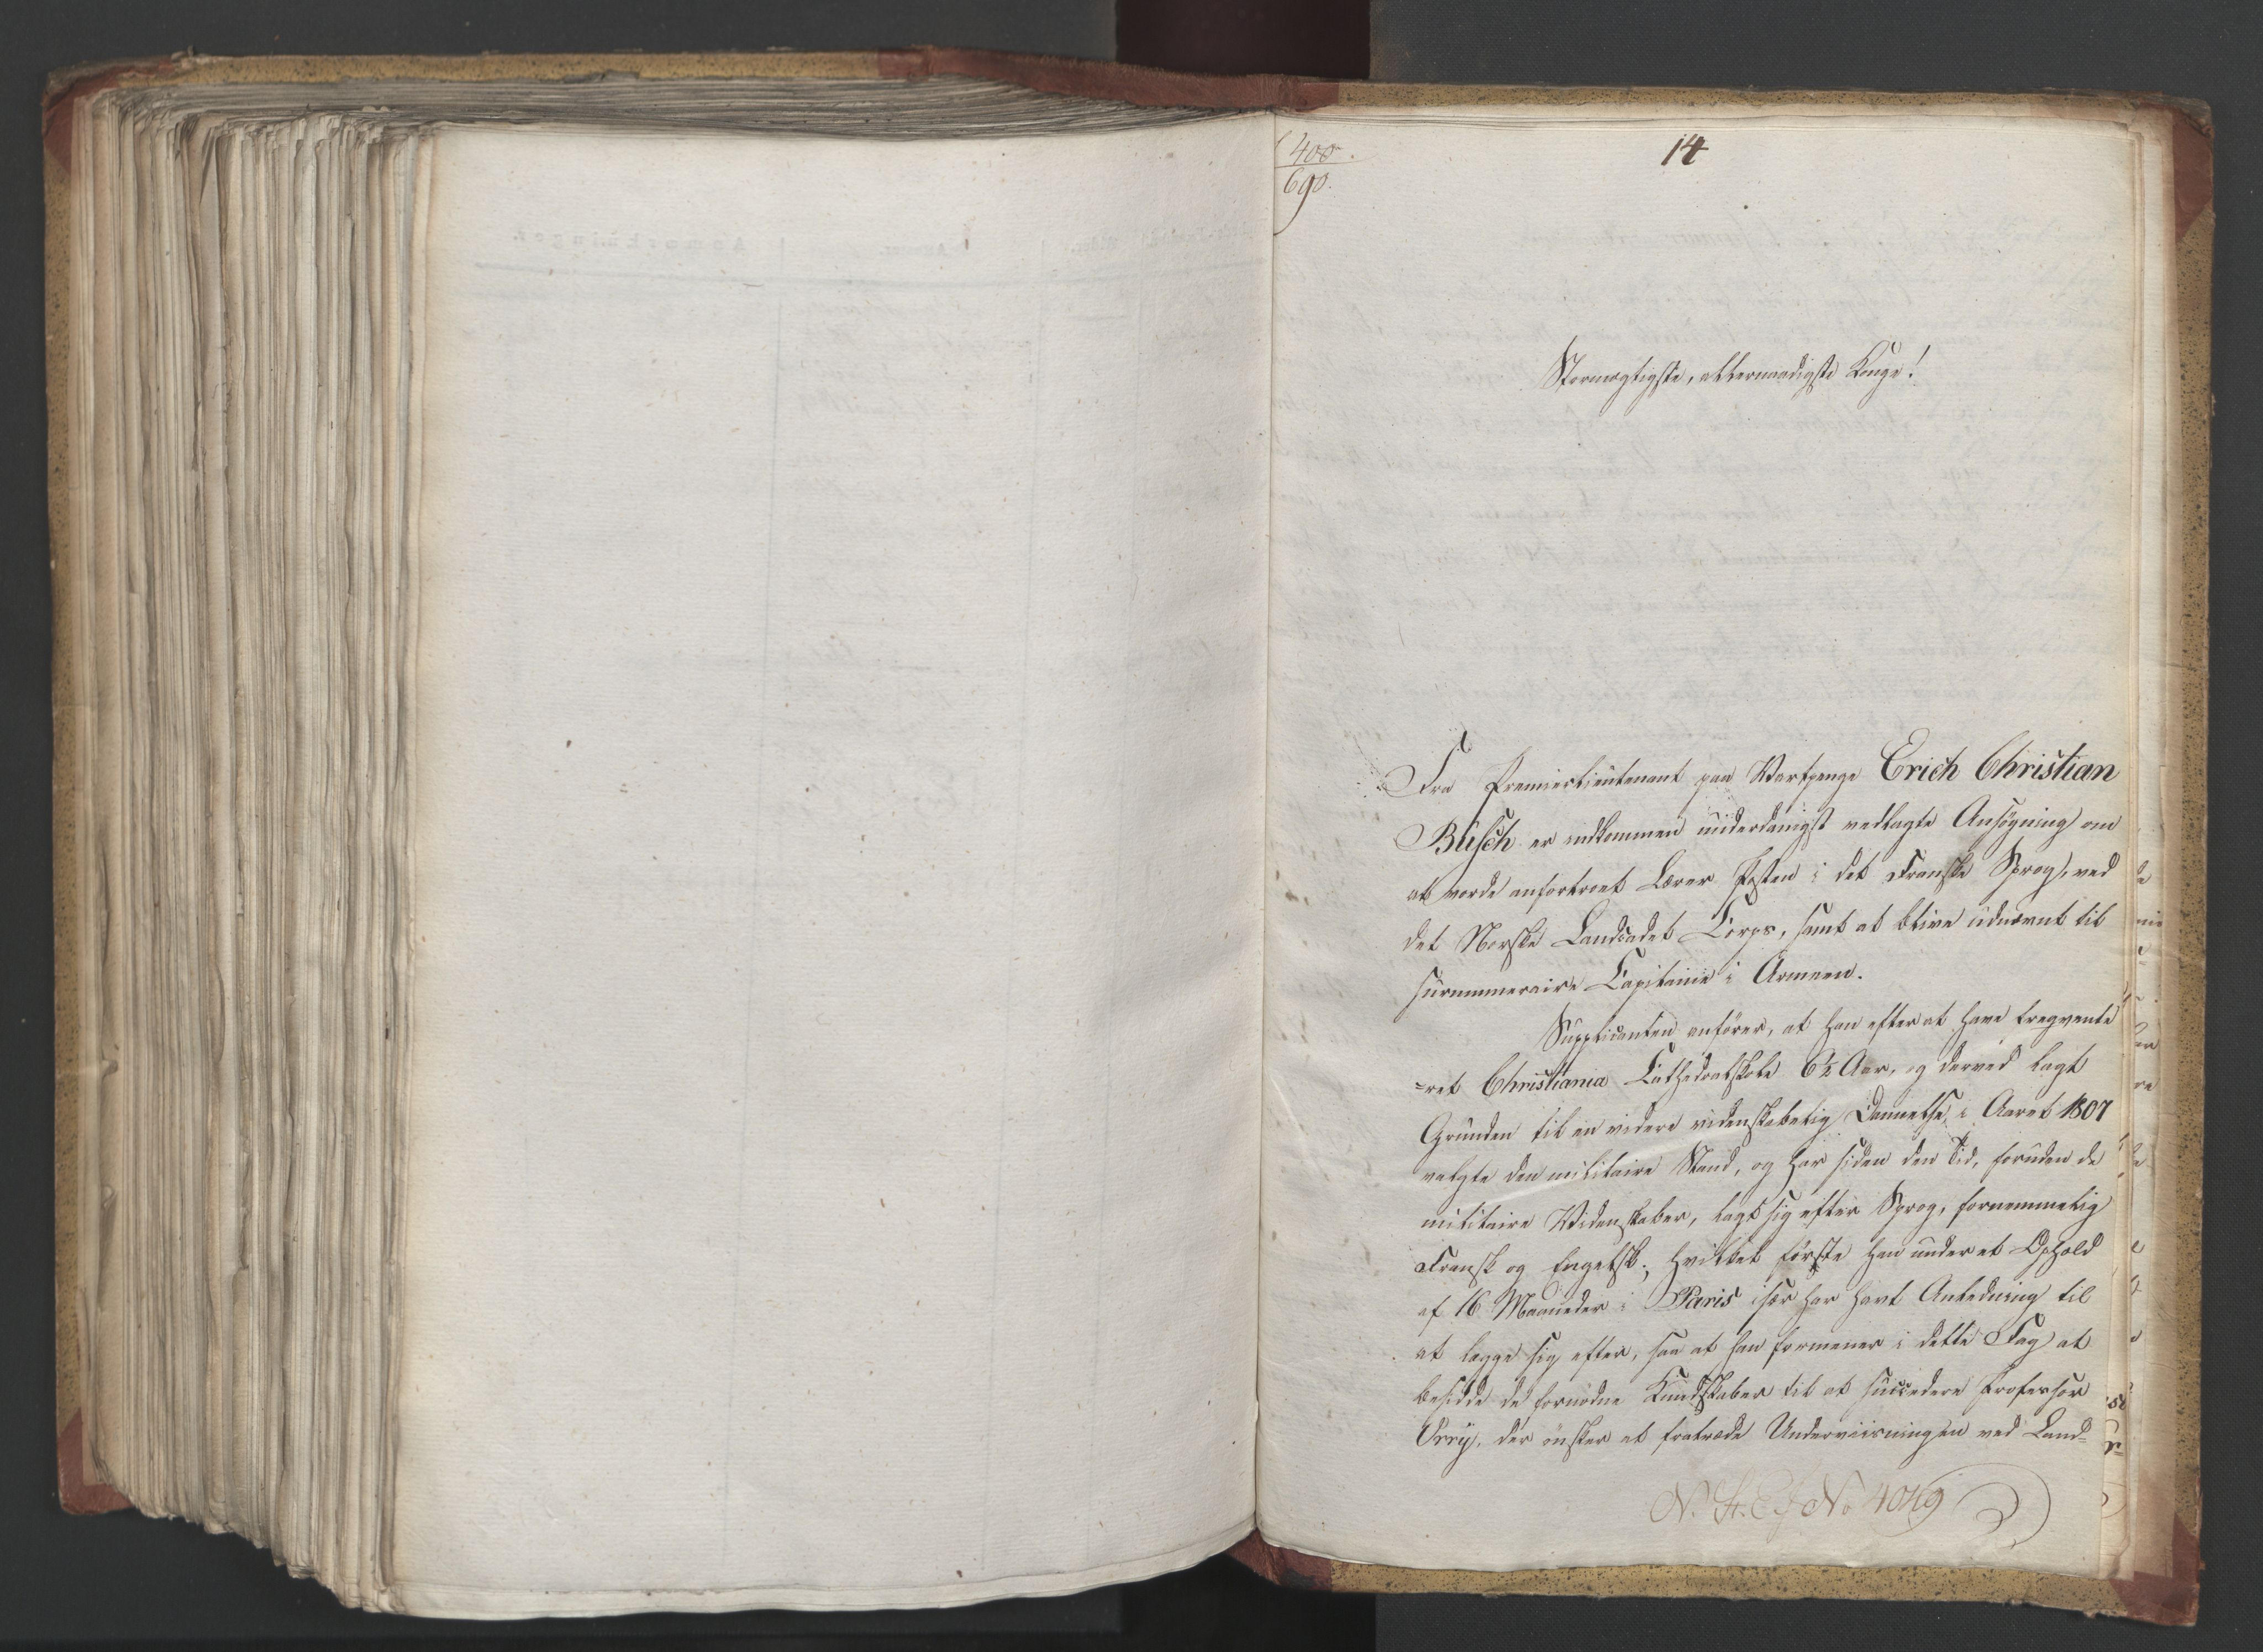 400.
690.
14
Stormægtigste, allernaadigste Konge!
Fra Premierlieutenant paa Vartpenge Erich Christian
Büsch er indkommen underdanigst vedlagte Ansøgning om
at vorde anfortroet Lærer Posten i det Franske Sprog, ved
det Norske Landcadet Corps, samt at blive udnævnt til
surnummeraire Capitaine i Armeen.
Supplicanten anfører, at han efter at have freqvente
=ret Christiania Cathedralskole 6½ Aar, og derved lagt
Grunden til en videre videnskabelig Dannelse, i Aaret 1807
valgte den militaire Stand, og har siden den Tid, foruden de
militaire Videnskaber, lagt sig efter Sprog, fornemmelig
Fransk og Engelsk; hvilket første han under et Ophold
af 16 Maaneder i Paris især har havt Anledning til
at lægge sig efter, saa at han formener i dette Fag at
besidde de fornødne Kundskaber til at succedere Professor
Orry, der ønsker at fratræde Underviisningen ved Land-
N. St. Ex No 4049